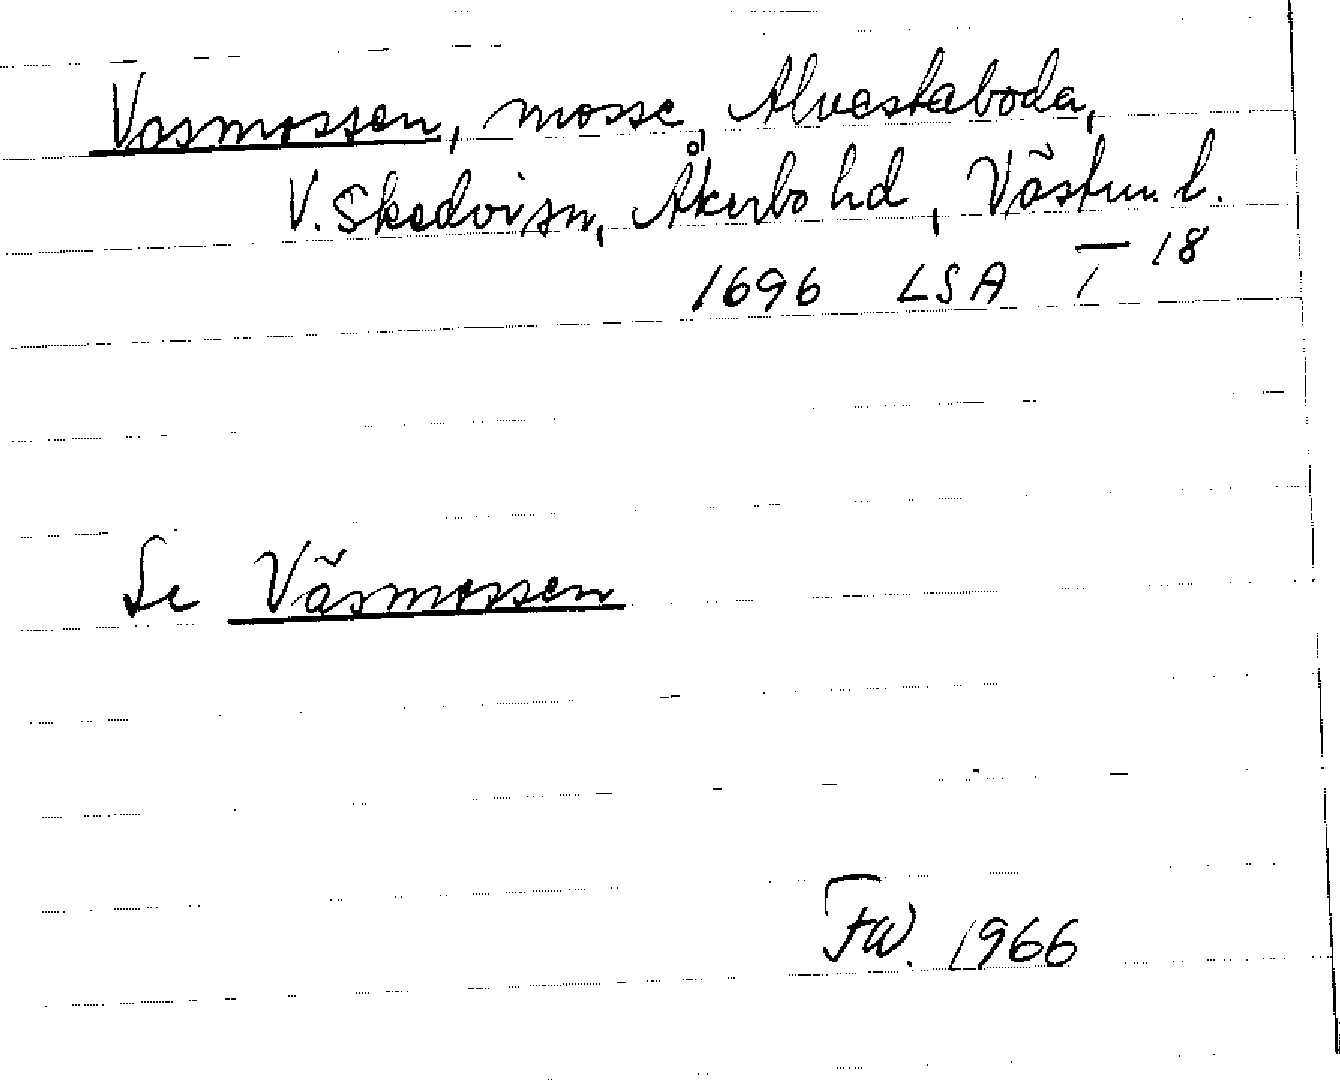 Vasmossen, mosse, Alvestaboda,
V. Skedvi sn, Åkerbo hd, Västm. l.
1696 LSA T 18
Se Väsmossen
FW. 1966